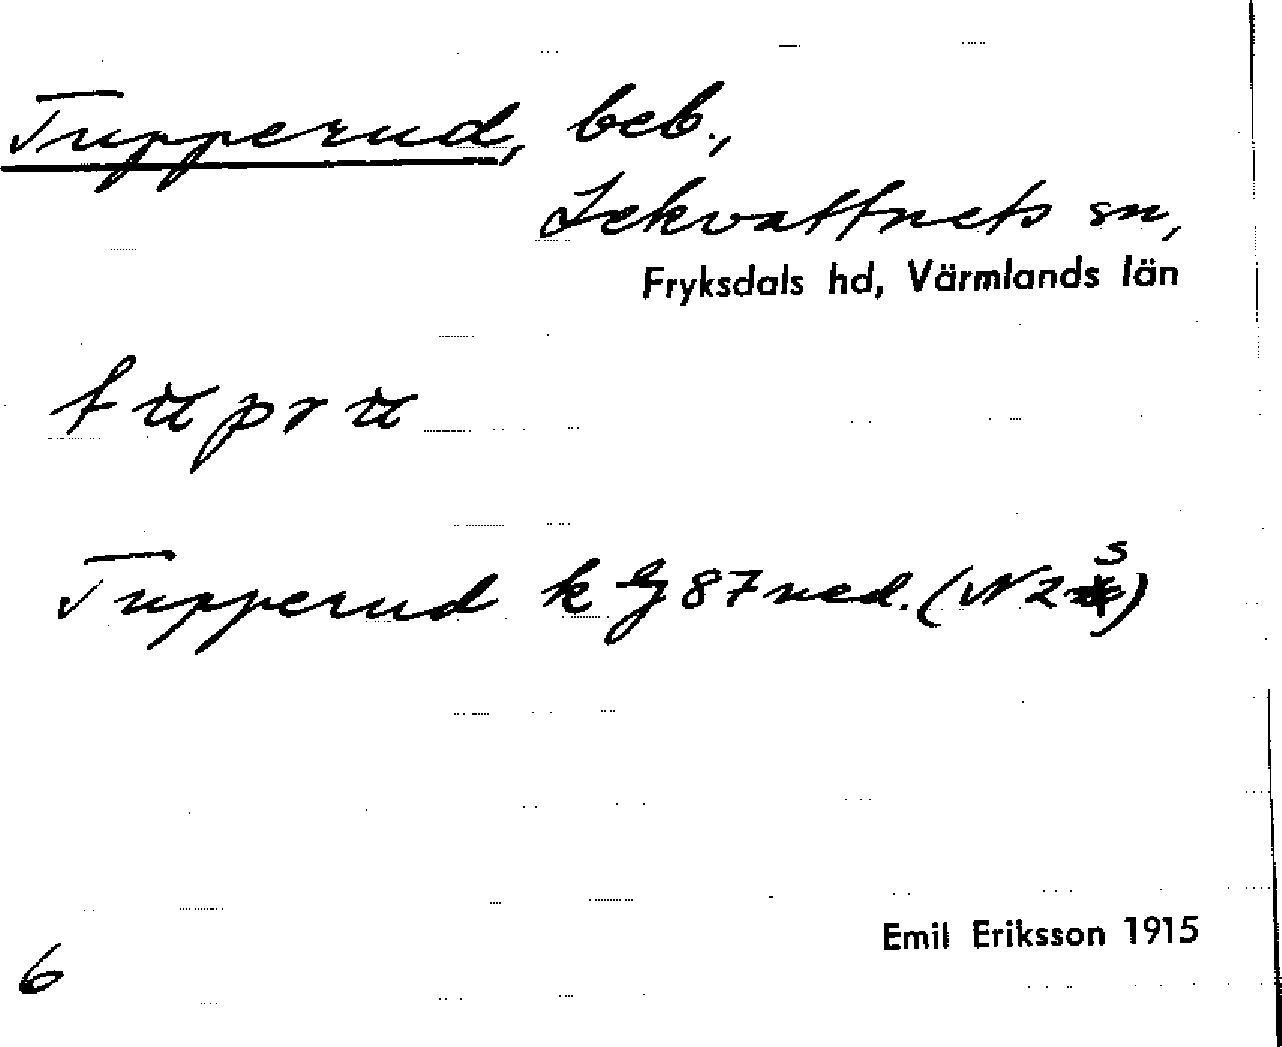 Tupperud, beb.,
Lekvattnets sn,
Fryksdals hd, Värmlands län
Tupperud k bl 87 ned. (N2 s)
Emil Eriksson 1915
6